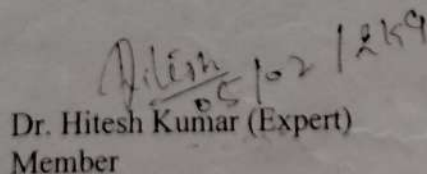 05/02/2k19
Dr. Hitesh Kumar (Expert)
Member